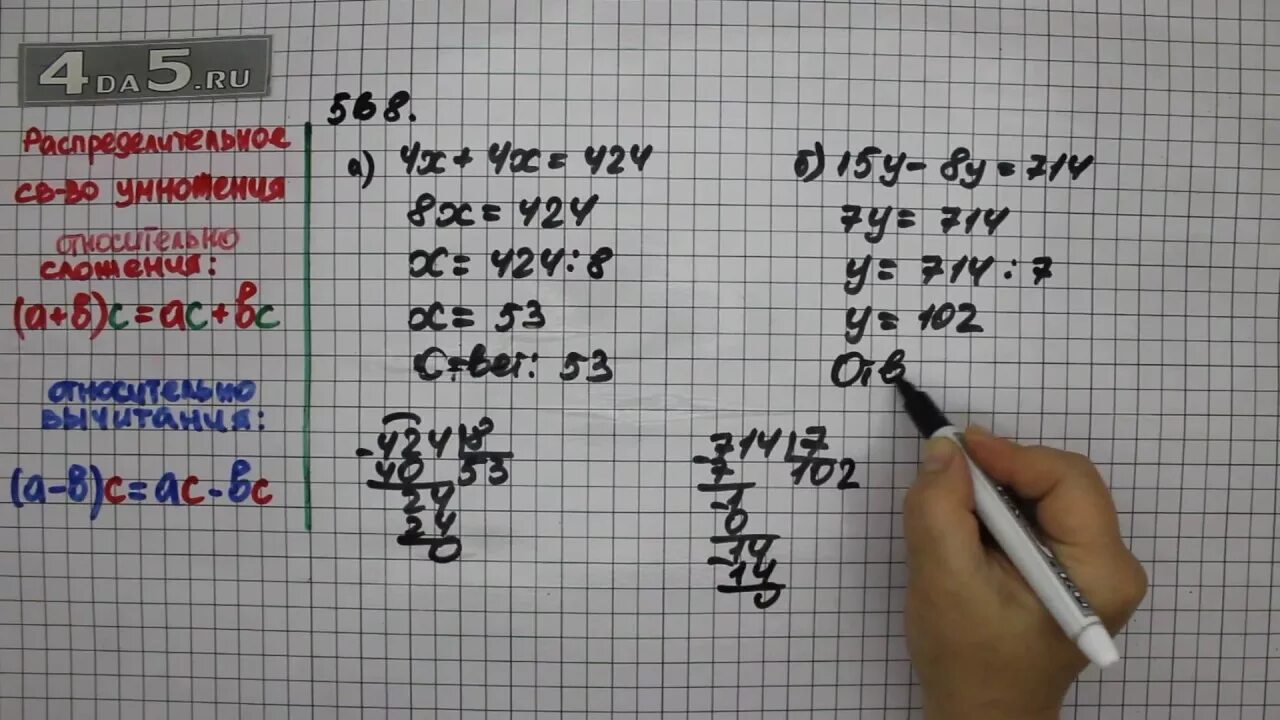 4DA5.RU
Распределительное
св-во умножения
относительно
сложения:
(а+в)с=ас+вс
относительно
вычитания:
(а-в)с=ас-вс
568.
а) 4х+4х=424
8х=424
х=424:8
х=53
Ответ: 53
-424|8
40 53
24
24
0
б) 15у-8у=714
7у=714
у=714:7
у=102
Отв
-714|7
7 102
-1
0
-14
14
0